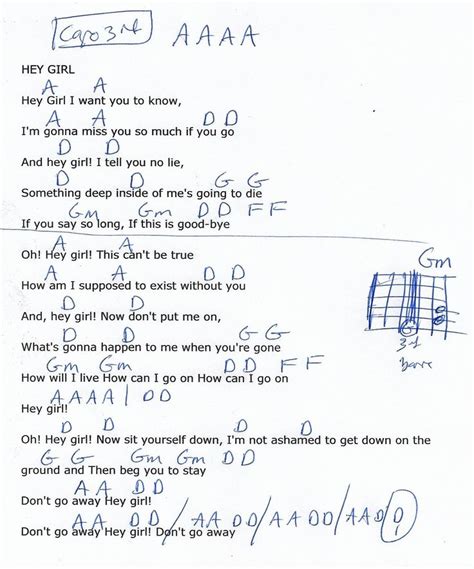 Capo 3rd A A A A
HEY GIRL
A A
Hey Girl I want you to know,
A A D D
I'm gonna miss you so much if you go
D D
And hey girl! I tell you no lie,
D D G G
Something deep inside of me's going to die
Gm Gm D D F F
If you say so long, If this is good-bye
A A
Oh! Hey girl! This can't be true
Gm
A A D D
How am I supposed to exist without you
D D
And, hey girl! Now don't put me on,
D D G G
What's gonna happen to me when you're gone
barre
Gm Gm D D F F
How will I live How can I go on How can I go on
A A A A | D D
Hey girl!
D D D
Oh! Hey girl! Now sit yourself down, I'm not ashamed to get down on the
G G Gm Gm D D
ground and Then beg you to stay
A A D D
Don't go away Hey girl!
A A D D / A A D D / A A D D / A A D D
Don't go away Hey girl! Don't go away